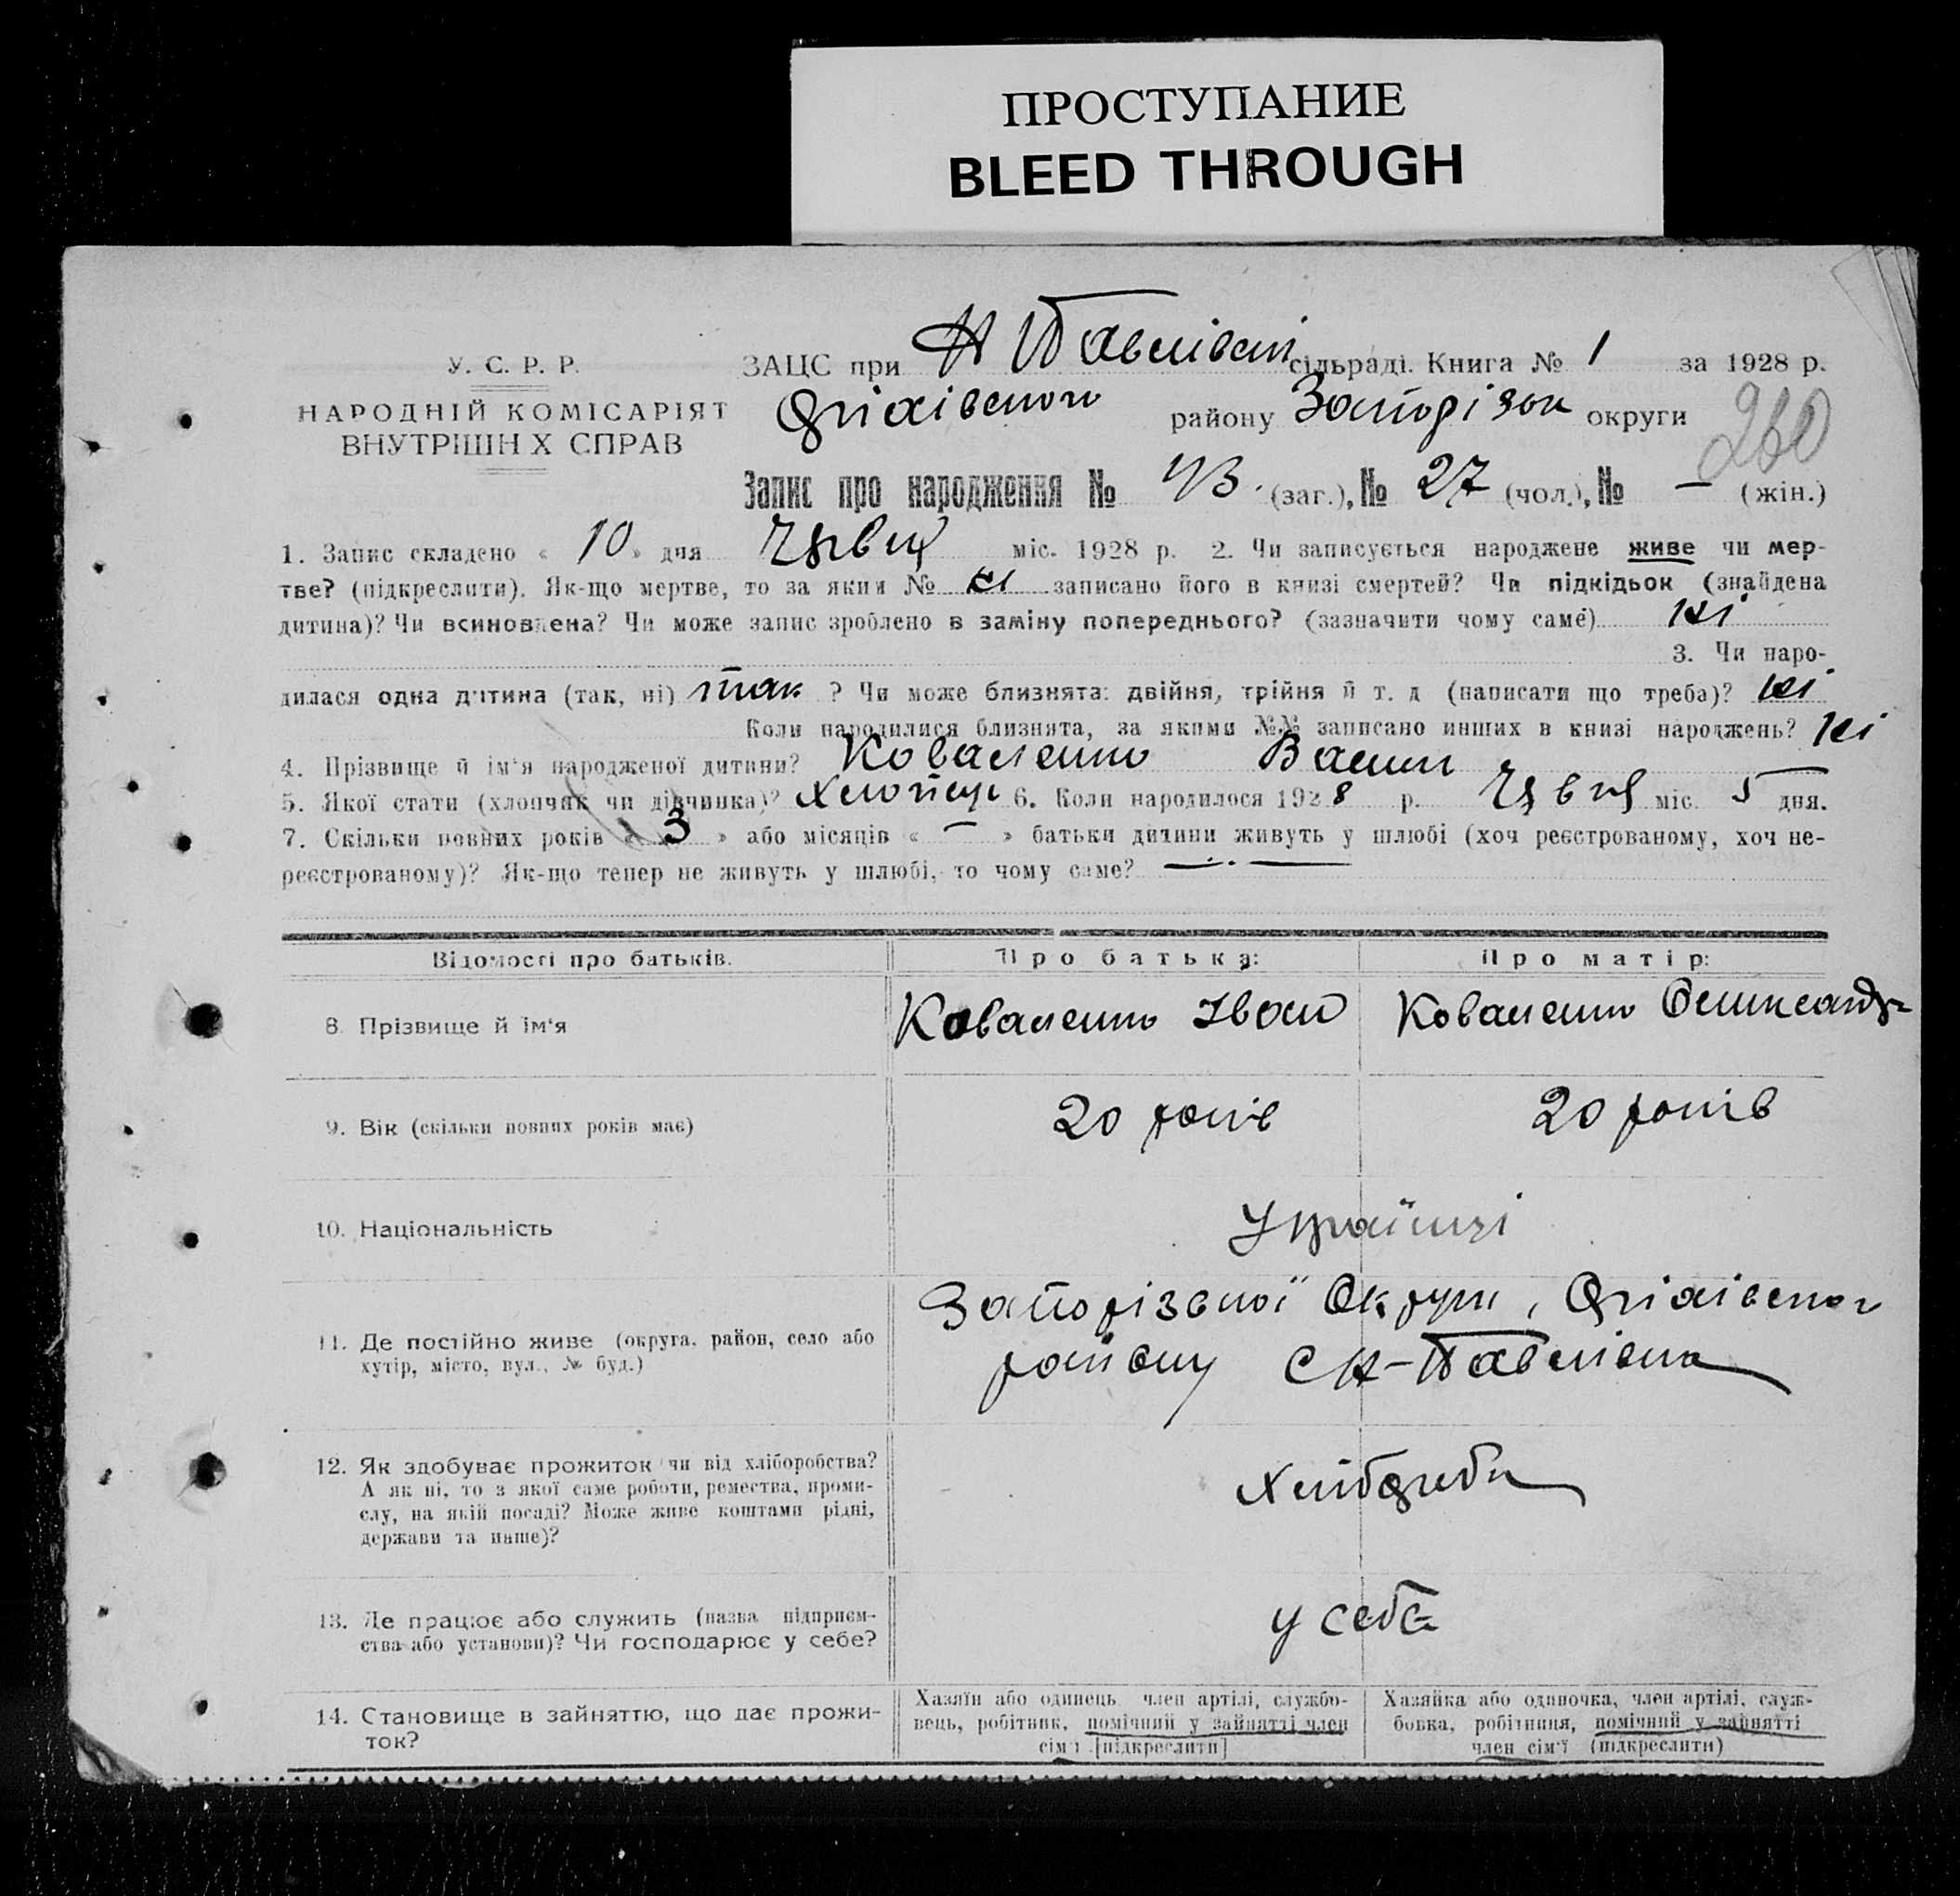 ПРОСТУПАНИЕ
BLEED THROUGH
У. С. Р. Р.
НАРОДНІЙ КОМІСАРІЯТ
ВНУТРІШН Х СПРАВ
ЗАЦС при Н Павлівкі сільраді. Книга № 1 за 1928 р.
району Запорізьк округи
260
Запис про народження № 43. (заг.), № 27 (чол.), № — (жін.)
1. Запис складено « 10 » дня Червця міс. 1928 р. 2. Чи записується народжене живе чи мер-
тве? (підкреслити). Як-що мертве, то за яким № ні записано його в книзі смертей? Чи підкідьок (знайдена
дитина)? Чи всиновлена? Чи може запис зроблено в заміну попереднього? (зазначити чому саме) ні
3. Чи наро-
дилася одна дитина (так, ні) так ? Чи може близнята: двійня, трійня й т. д (написати що треба)? ні
Коли народилися близнята, за якими №№ записано инших в книзі народжень? ні
4. Прізвище й ім'я народженої дитини? Коваленко Васил
5. Якої стати (хлопчик чи дівчинка)? Хлопець 6. Коли народилося 1928 р. Червця міс. 5 дня.
7. Скільки повних років « 3 » або місяців « — » батьки дитини живуть у шлюбі (хоч реєстрованому, хоч не-
реєстрованому)? Як-що тепер не живуть у шлюбі, то чому саме? —
Відомості про батьків. Про батька: Про матір:
8. Прізвище й ім'я Коваленко Іван Коваленко Олександра
9. Вік (скільки повних років має) 20 років 20 років
10. Національність Українці
11. Де постійно живе (округа, район, село або
хутір, місто, вул., № буд.)
Запорізької Округи,
району С Н-Павлівка
12. Як здобуває прожиток чи від хліборобства?
А як ні, то з якої саме роботи, ремества, проми-
слу, на якій посаді? Може живе коштами рідні,
держави та инше)?
Хліборобн
13. Де працює або служить (назва підприєм-
ства або установи)? Чи господарює у себе?
у себе
14. Становище в зайняттю, що дає прожи-
ток?
Хазяїн або одинець член артілі, службо-
вець, робітник, помічний у зайнятті член
сім'ї [підкреслити]
Хазяйка або одиночка, член артілі, служ-
бовка, робітниця, помічний у зайнятті
член сім'ї (підкреслити)